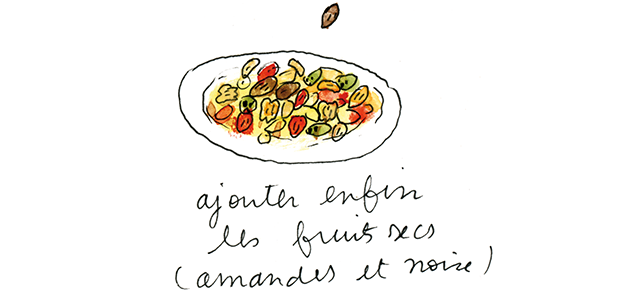 ajouter enfin
les fruits secs
(amandes et noix)